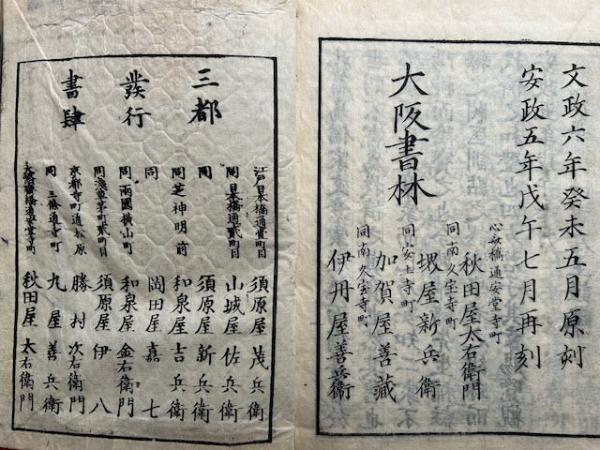 文政六年癸未五月原刻
安政五年戊午七月再刻
大阪書林
心斎橋通安堂寺町 秋田屋太右衛門
同南久宝寺町 堺屋新兵衛
同安土寺町 加賀屋善藏
同南久宝寺町 伊丹屋善兵衛
三都
發行
書肆
江戸日本橋通壹町目 須原屋茂兵衛
同日本橋通貳町目 山城屋佐兵衛
同 須原屋新兵衛
同芝神明前 和泉屋吉兵衛
同 岡田屋嘉七
同兩國横山町 和泉屋金右衛門
同淺草茅町貳町目 須原屋伊八
京都寺町通松原 勝村次右衛門
同三條通寺町 丸屋善兵衛
大坂心齋橋通安堂寺町 秋田屋太右衛門